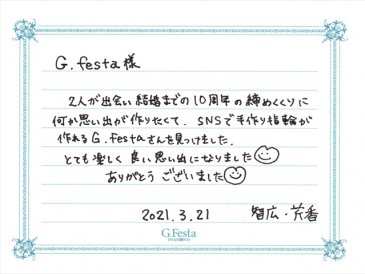 G.festa様
2人が出会い結婚までの10周年の締めくくりに
何か思い出が作りたくて、SNSで手作り指輪が
作れるG.festaさんを見つけました。
とても楽しく良い思い出になりました
ありがとうございました
2021.3.21 智広・芹香
G.Festa
DIAMOND